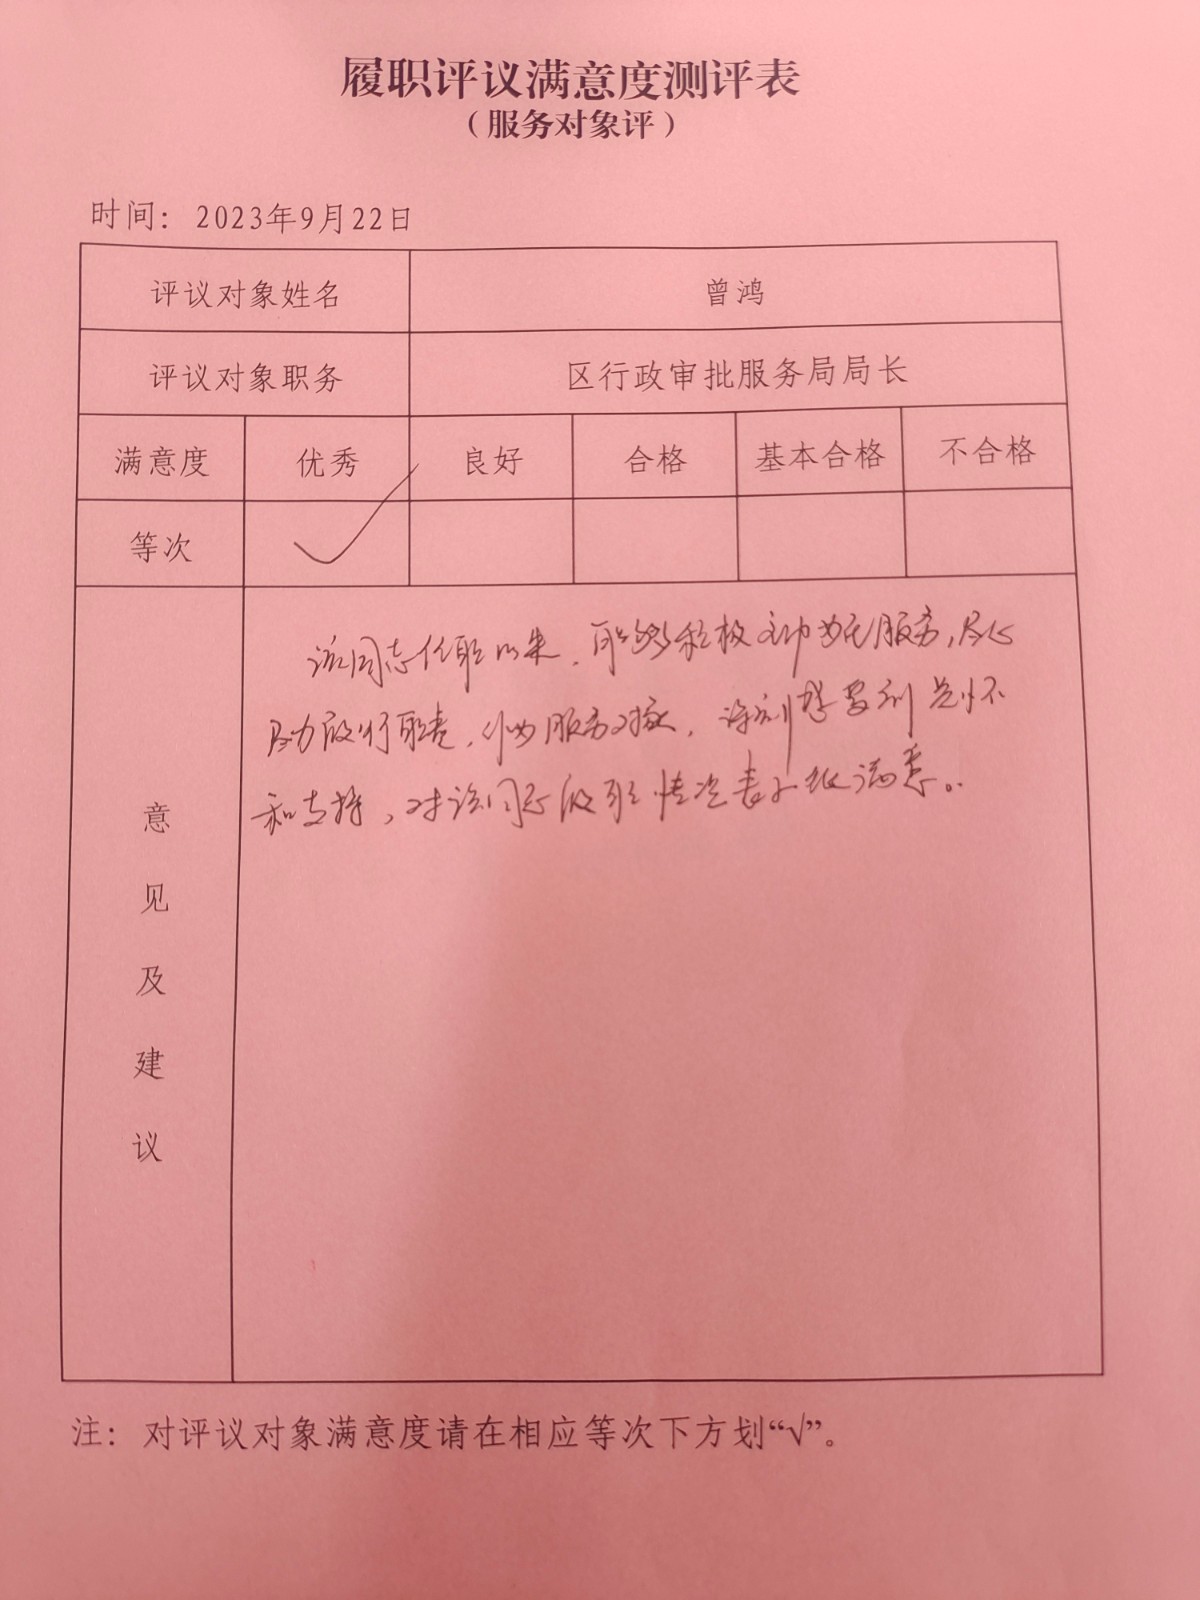 履职评议满意度测评表
（服务对象评）
时间：2023年9月22日
评议对象姓名 曾鸿
评议对象职务 区行政审批服务局局长
满意度 优秀 良好 合格 基本合格 不合格
等次 √
意见及建议
该同志任职以来，能够积极主动为民服务，尽心
尽力履行职责，服务对象，深刻感受到关怀
和支持，对该同志履职情况表示很满意。
注：对评议对象满意度请在相应等次下方划“√”。